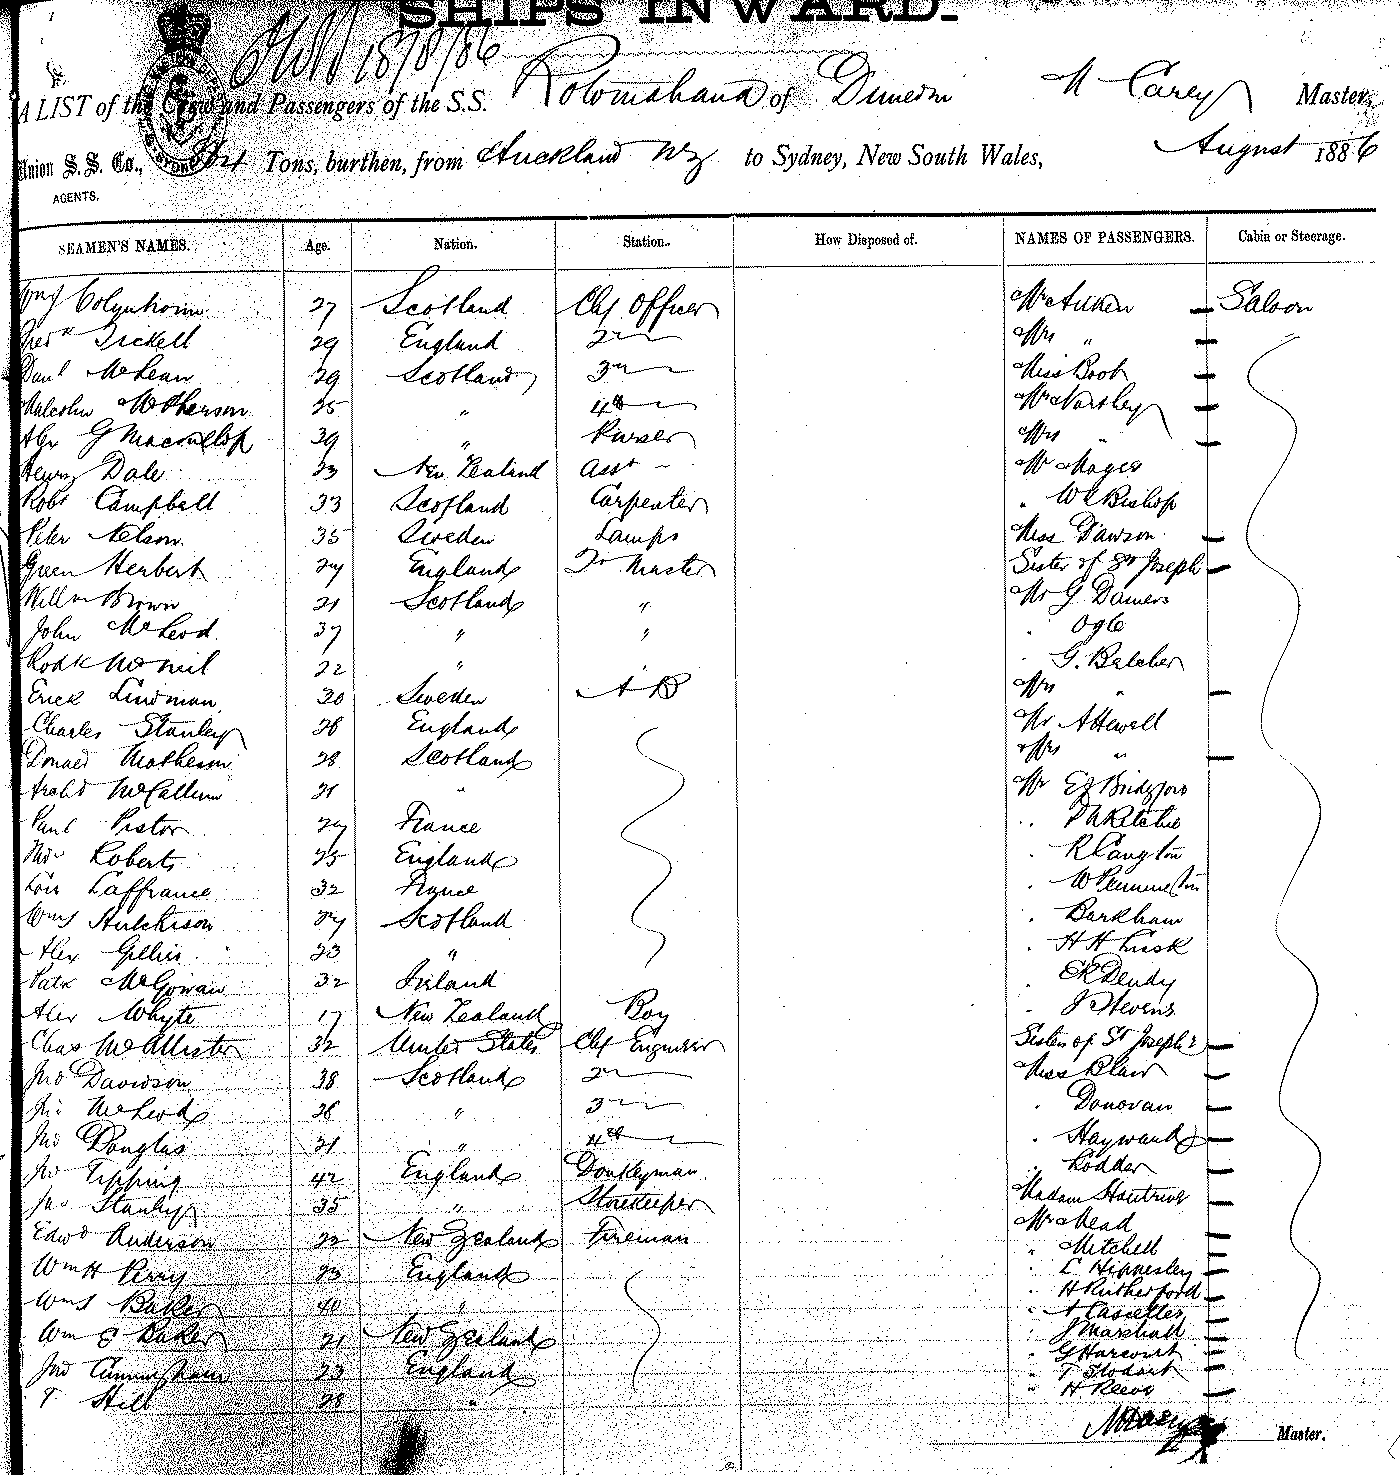 SHIPS INWARD.
18/8/86
A LIST of the Crew and Passengers of the S.S. Rotomahana of Dunedin M Carey Master,
Union S.S. Co., Tons, burthen, from Auckland NZ to Sydney, New South Wales, August 1886
AGENTS.
SEAMEN'S NAMES. Age. Nation. Station. How Disposed of. NAMES OF PASSENGERS. Cabin or Steerage.
27 Scotland Chf Officer Mr Aitken Saloon
Tickell 29 England 2nd Mrs "
Danl McLean 29 Scotland 3rd Miss Boot
Malcolm McPherson 25 " 4th Mr
Alex G 39 " Purser Mrs "
Henry Dale 23 New Zealand Asst Mr
Robt Campbell 33 Scotland Carpenter " Bishop
Peter Nelson 35 Sweden Lamps Miss Dawson
Green Herbert 24 England Master Sister of St Joseph
Willm Brown 21 Scotland " Mr G
John McLeod 37 " "
Rodk McNeil 22 " " G. Belcher
Erick Lindman 30 Sweden A B Mrs "
Charles Stanley 26 England Mr Attewell
Donald Matheson 28 Scotland Mrs "
Archd McCallum 21 " Mr
Paul Pistor 24 France " Ritchie
Roberts 25 England " R Langton
Laffrance 32 France " W
Wm Hutchison 24 Scotland " Barkham
Alex Gillies 23 " " H H Lusk
Patk McGowan 32 Ireland " Dendy
Alex Whyte 17 New Zealand Boy " J Stevens
Chas McAllister 32 United States Chf Engineer Sister of St Joseph
Jno Davidson 38 Scotland 2nd Miss Blair
Jno McLeod 26 " 3rd " Donovan
Jno Douglas 21 " 4th " Hayward
Jno Tipping 42 England Donkeyman " Lodder
Jno Stanley 35 " Storekeeper Madam
Edwd Anderson 22 New Zealand Fireman Mr Mead
" Mitchell
Wm H Perry 23 England " L Hippesley
" H Rutherford
Baker 40 " "
Wm E Baker 21 New Zealand " J Marshall
" G Harcourt
Jno Cunningham 23 England " T Stodart
T Still 28 " " H Reeve
M Carey
Master.